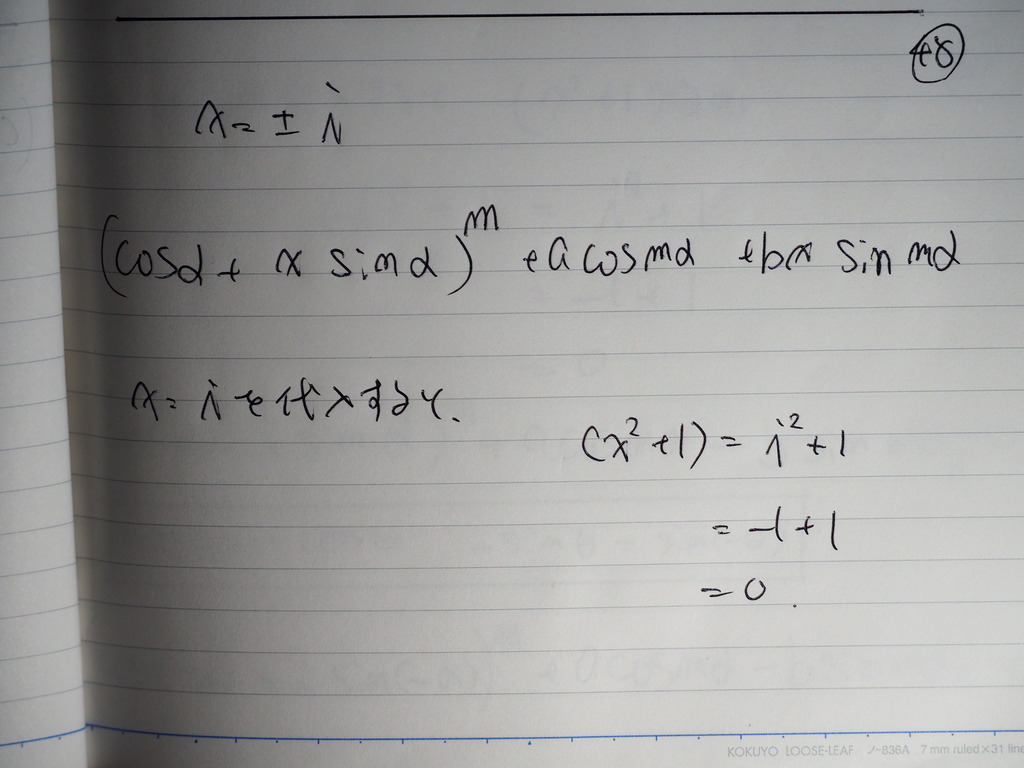 48
x = ± i
(cosα + x sinα)^m + a cos mα + bx sin mα
x = i を代入すると.
(x² + 1) = i² + 1
= -1 + 1
= 0.
KOKUYO LOOSE-LEAF ノ-836A 7 mm ruled×31 line